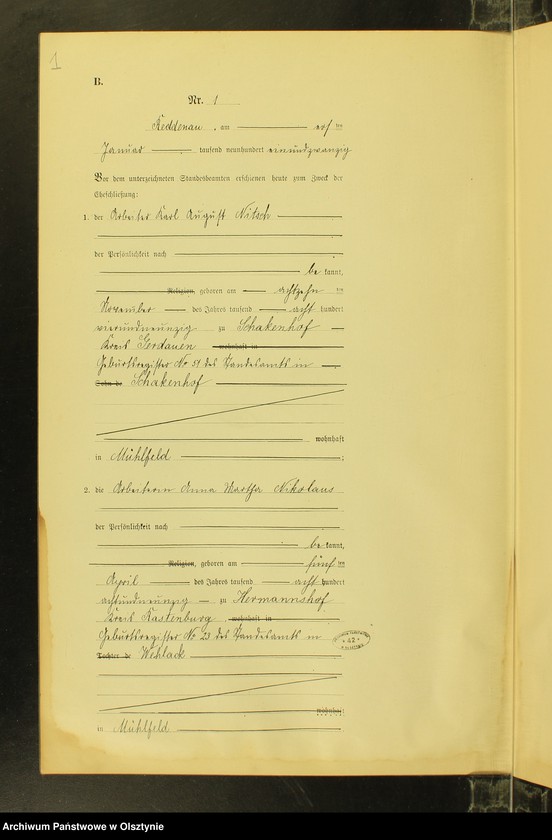 1
B.
Nr. 1
Keddenau, am ersten
Januar tausend neunhundert einundzwanzig
Vor dem unterzeichneten Standesbeamten erschienen heute zum Zweck der
Eheschließung:
1. der Arbeiter Karl August Nitsch
der Persönlichkeit nach
be kannt,
Religion, geboren am achtzehn ten
November des Jahres tausend acht hundert
vierundneunzig zu Schakenhof
Kreis Gerdauen wohnhaft in
Geburtsregister No 51 des Standesamts in
Sohn de Schakenhof
wohnhaft
in Mühlfeld ;
2. die Arbeiterin Anna Martha Nikolaus
der Persönlichkeit nach
be kannt,
Religion, geboren am fünf ten
April des Jahres tausend acht hundert
achtundneunzig zu Hermannshof
Kreis Rastenburg wohnhaft in
Geburtsregister No 23 des Standesamts in
Tochter de Wehlack
42
wohnhaft
in Mühlfeld
Archiwum Państwowe w Olsztynie